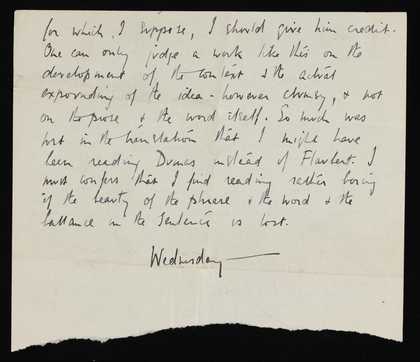 for which, I suppose, I should give him credit.
One can only judge a work like this on the
development of the context & the actual
expounding of the idea - however clumsy, & not
on the prose & the word itself. So much was
lost in the translation that I might have
been reading Dumas instead of Flaubert. I
must confess that I find reading rather boring
if the beauty of the phrase & the word & the
ballance in the sentence is lost.
Wednesday